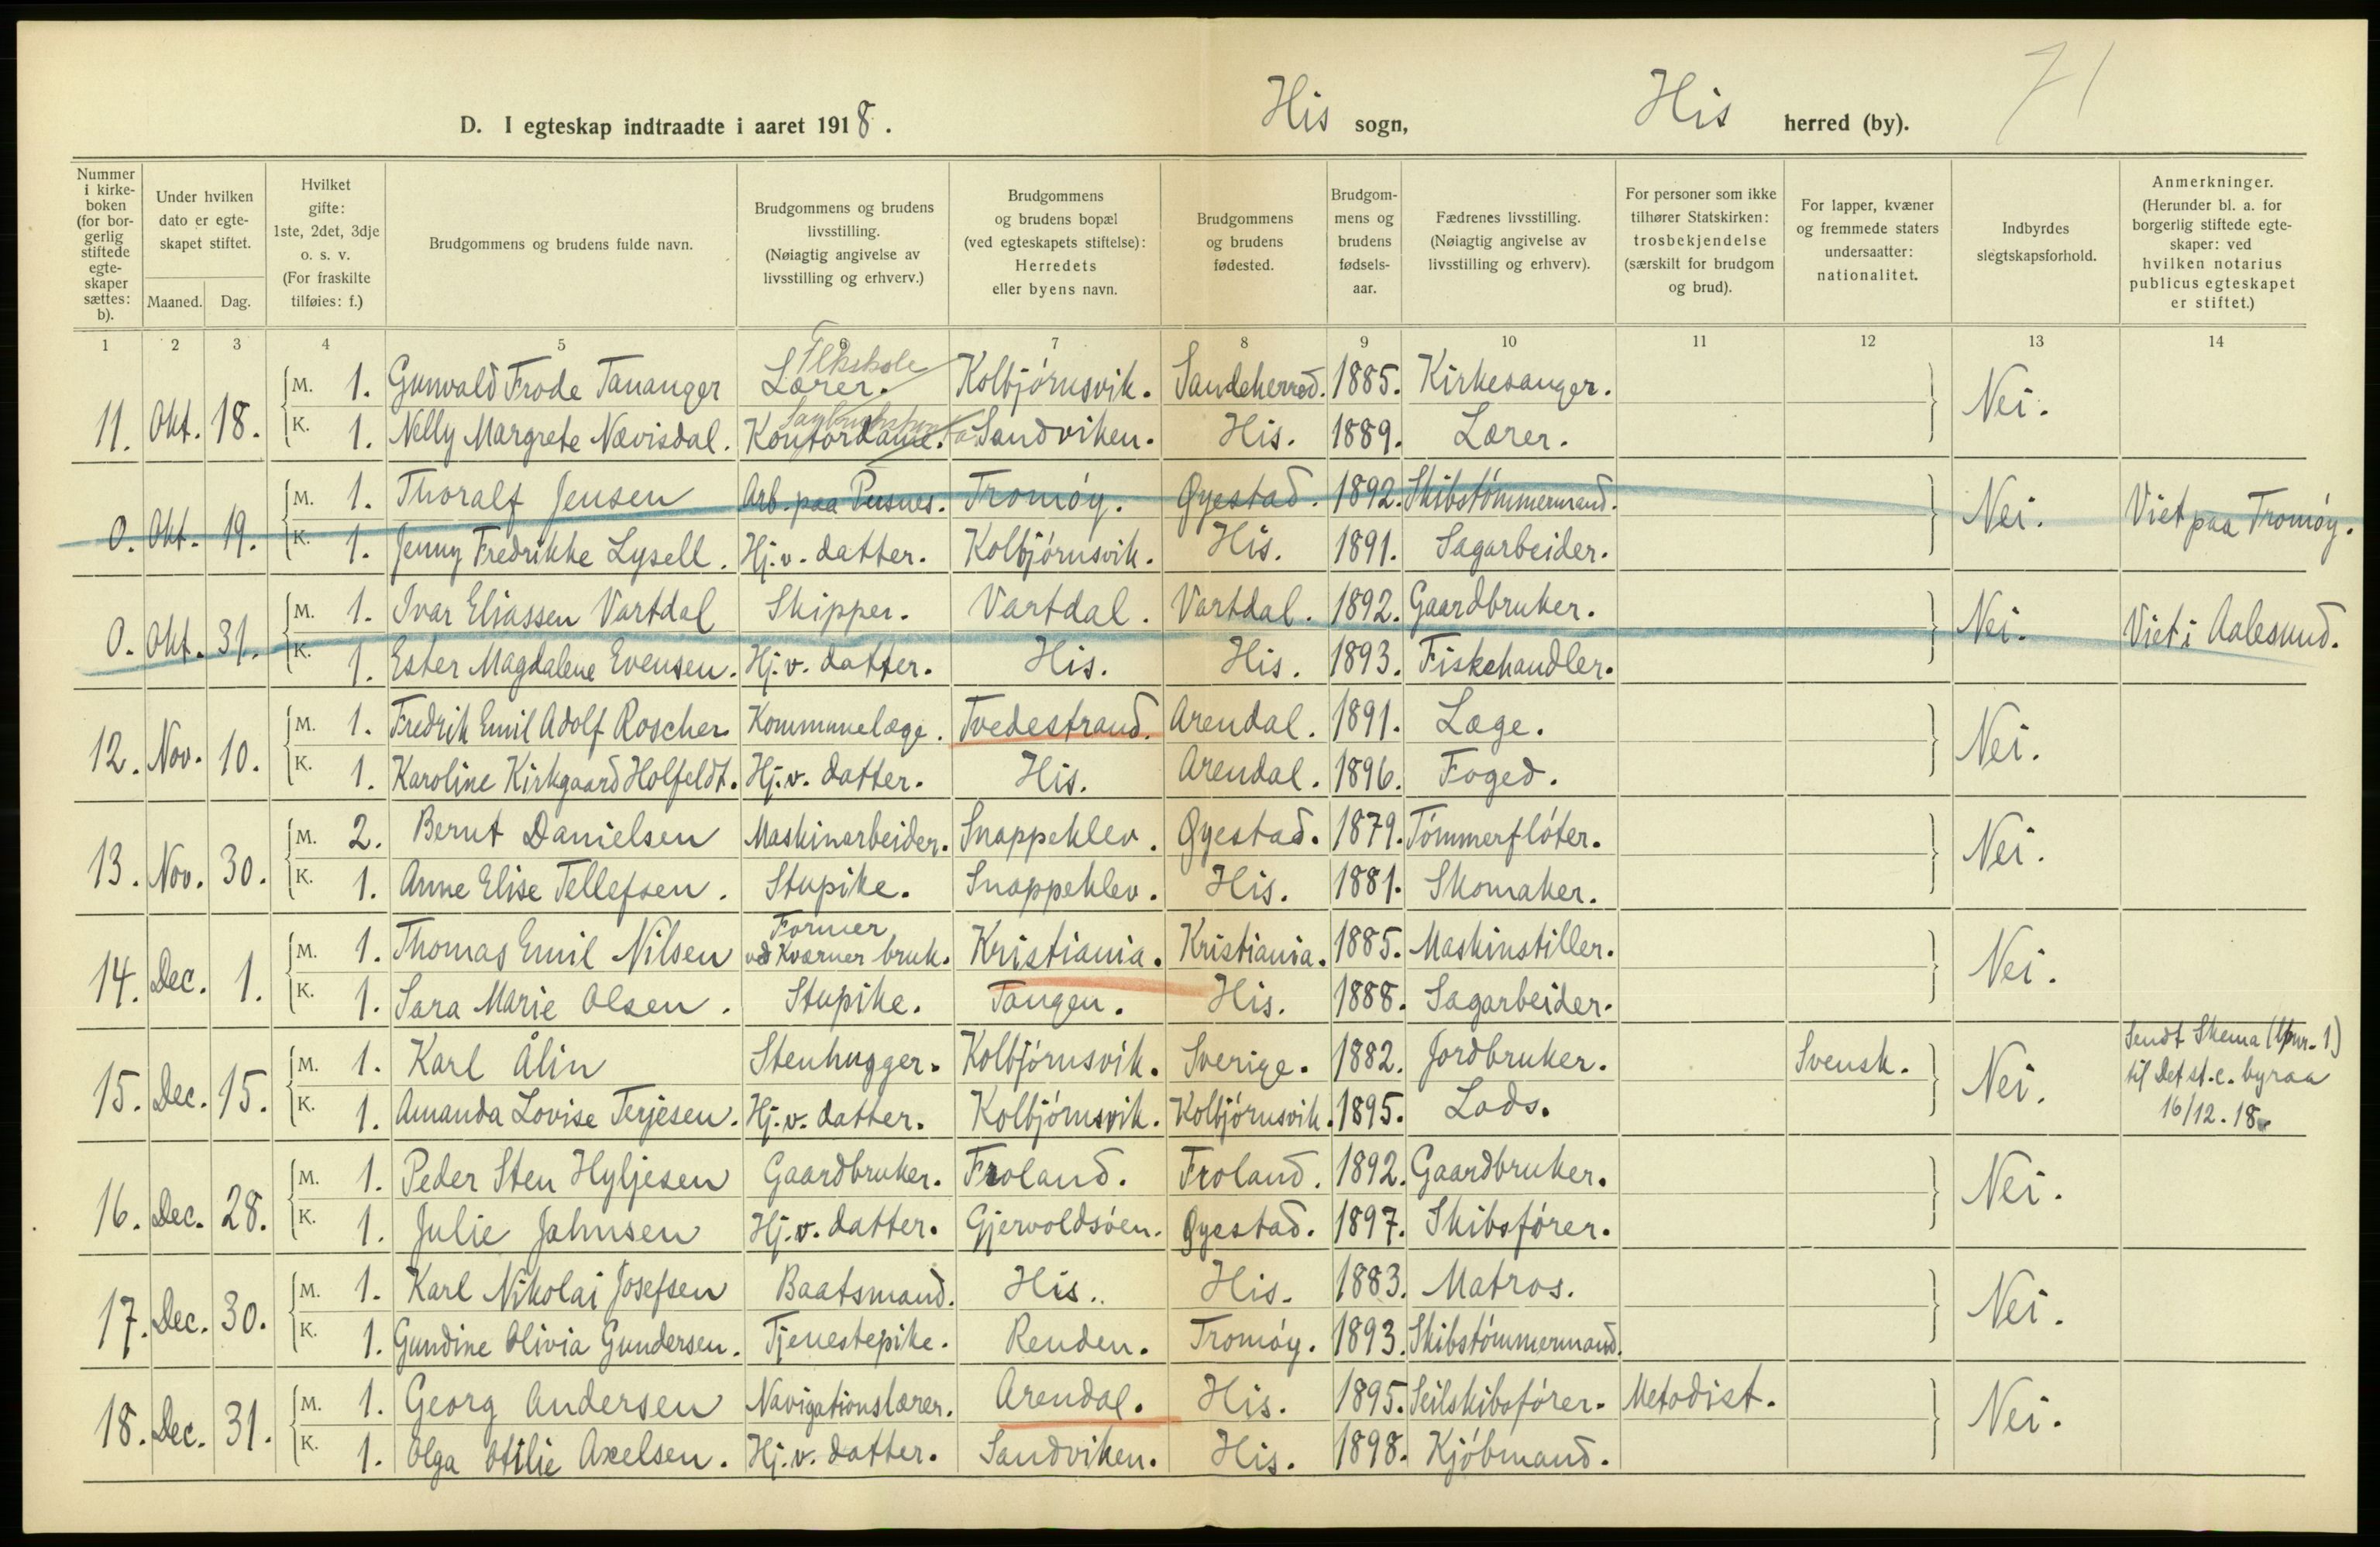 71
D. I egteskap indtraadte i aaret 1918. His sogn, His herred (by).
Nummer i kirkeboken (for borgerlig stiftede egteskaper sættes: b).
Under hvilken dato er egteskapet stiftet.
Maaned. Dag.
Hvilket gifte: 1ste, 2det, 3dje o. s. v. (For fraskilte tilføies: f.)
Brudgommens og brudens fulde navn.
Brudgommens og brudens livsstilling. (Nøiagtig angivelse av livsstilling og erhverv.)
Brudgommens og brudens bopæl (ved egteskapets stiftelse): Herredets eller byens navn.
Brudgommens og brudens fødested.
Brudgommens og brudens fødselsaar.
Fædrenes livsstilling. (Nøiagtig angivelse av livsstilling og erhverv).
For personer som ikke tilhører Statskirken: trosbekjendelse (særskilt for brudgom og brud).
For lapper, kvæner og fremmede staters undersaatter: nationalitet.
Indbyrdes slegtskapsforhold.
Anmerkninger. (Herunder bl. a. for borgerlig stiftede egteskaper: ved hvilken notarius publicus egteskapet er stiftet.)
1 2 3 4 5 6 7 8 9 10 11 12 13 14
Flkskole
M. 1. Gunvald Frode Tananger Lærer. Kolbjörnsvik. Sandeherred. 1885. Kirkesanger.
11. Okt. 18. Nei.
K. 1. Nelly Margrete Nævisdal. Kontordame. Sandviken. His. 1889. Lærer.
M. 1. Thoralf Jensen Arb. paa Pusnes. Tromöy. Øyestad. 1892. Skibstömmermand.
0. Okt. 19. Nei. Viet paa Tromöy.
K. 1. Jenny Fredrikke Lysell. Hj. v. datter. Kolbjörnsvik. His. 1891. Sagarbeider.
M. 1. Ivar Eliassen Vartdal Skipper. Vartdal. Vartdal. 1892. Gaardbruker.
0. Okt. 31. Nei. Viet i Aalesund.
K. 1. Ester Magdalene Evensen. Hj. v. datter. His. His. 1893. Fiskehandler.
M. 1. Fredrik Emil Adolf Roscher Kommunelæge. Tvedestrand. Arendal. 1891. Læge.
12. Nov. 10. Nei.
K. 1. Karoline Kirkgaard Holfeldt. Hj. v. datter. His. Arendal. 1896. Foged.
M. 2. Bernt Danielsen Maskinarbeider. Snappeklev. Øyestad. 1879. Tömmerflöter.
13. Nov. 30. Nei.
K. 1. Anne Elise Tellefsen. Stupike. Snappeklev. His. 1881. Skomaker.
M. 1. Thomas Emil Nilsen Former ved Kværner bruk. Kristiania. Kristiania. 1885. Maskinstiller.
14. Dec. 1. Nei.
K. 1. Sara Marie Olsen. Stupike. Tangen. His. 1888. Sagarbeider.
M. 1. Karl Ålin Stenhugger. Kolbjörnsvik. Sverige. 1882. Jordbruker. Svensk.
15. Dec. 15. Nei. Sendt Skema til Det st. c. byraa 16/12. 18
K. 1. Amanda Lovise Terjesen. Hj. v. datter. Kolbjörnsvik. Kolbjörnsvik. 1895. Lods.
M. 1. Peder Sten Hyljesen Gaardbruker. Froland. Froland. 1892. Gaardbruker.
16. Dec. 28. Nei.
K. 1. Julie Jahnsen Hj. v. datter. Gjervoldsöen. Øyestad. 1897. Skibsförer.
M. 1. Karl Nikolai Josefsen Baatsmand. His. His. 1883. Matros.
17. Dec. 30. Nei.
K. 1. Gundine Olivia Gundersen. Tjenestepike. Renden. Tromöy. 1893. Skibstömmermand.
M. 1. Georg Andersen Navigationslærer. Arendal. His. 1895. Seilskibsförer. Metodist.
18. Dec. 31. Nei.
K. 1. Olga Otilie Axelsen. Hj. v. datter. Sandviken. His. 1898. Kjöbmand.